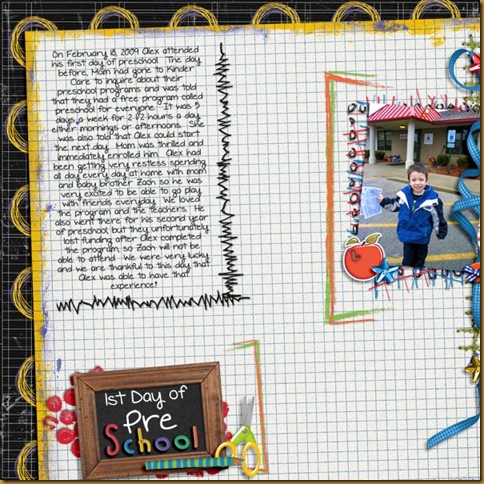 On February 18, 2009 Alex attended
his first day of preschool. The day
before, Mom had gone to Kinder
Care to inquire about their
preschool programs and was told
that they had a free program called
preschool for everyone. It was 5
days a week for 2 1/2 hours a day
either mornings or afternoons. She
was also told that Alex could start
the next day. Mom was thrilled and
immediately enrolled him. Alex had
been getting very restless spending
all day every day at home with mom
and baby brother Zach so he was
very excited to be able to go play
with friends everyday. We loved
the program and the teachers. He
also went there for his second year
of preschool but they unfortunately
lost funding after Alex completed
the program, so Zach will not be
able to attend. We were very lucky
and we are thankful to this day that
Alex was able to have that
experience!
1st Day of
Pre
School